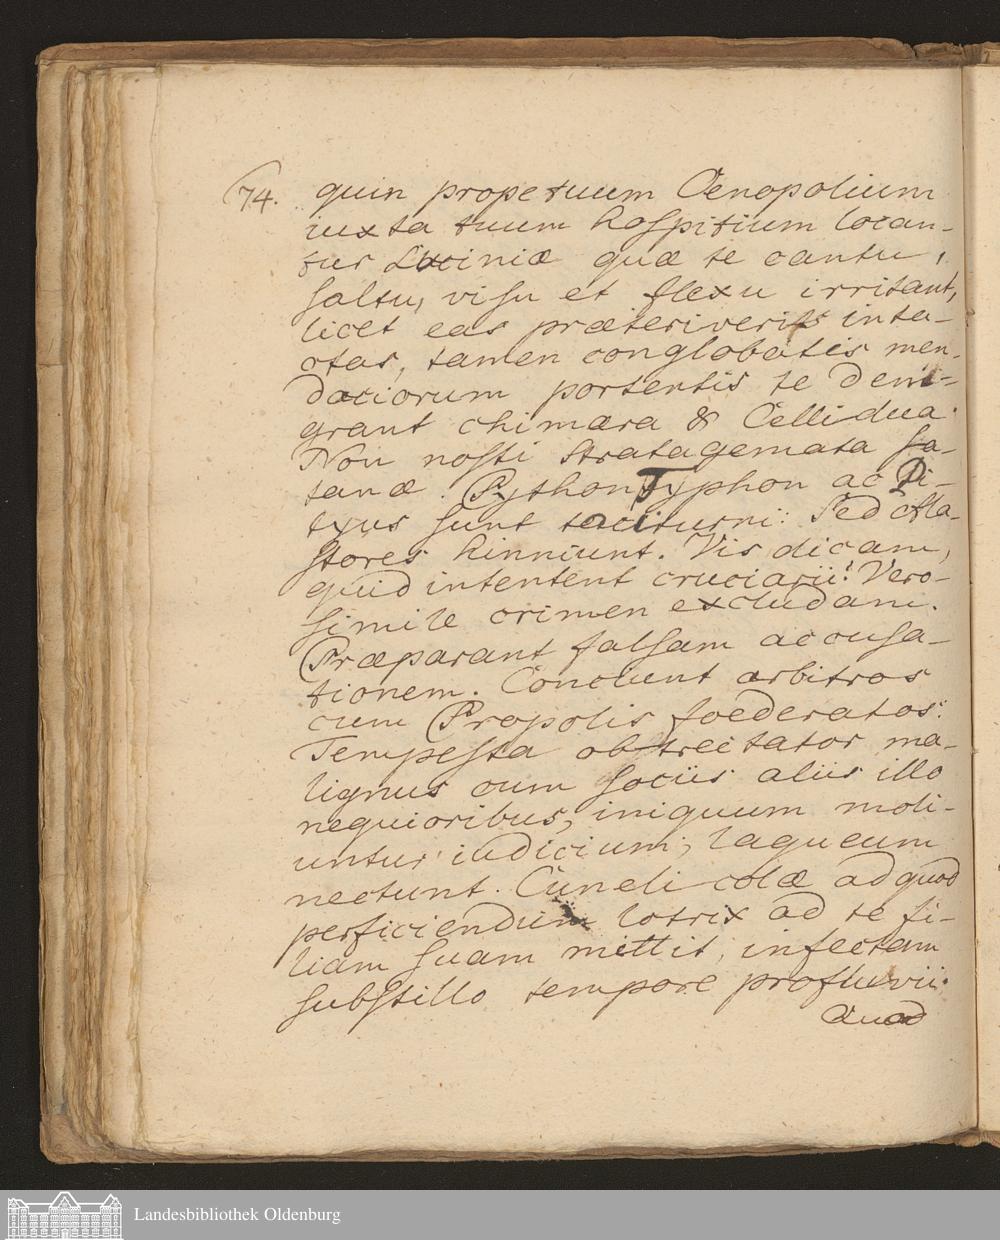 74. quin prope tuum Oenopolium
iuxta tuum hospitium locan-
tur Liciniæ quæ te cantu,
saltu, visu et flexu irritant,
licet eas præteriveris inta-
ctas, tamen conglobatis men-
daciorum portentis te deni-
grant chimæra & Cellidua.
Non nosti stratagemata sa-
tanæ. Python Typhon ac Di-
tyus sunt taciturni: Sed Ala-
stores hinniunt. Vis dicam,
quid intentent cruciarii? Vero-
simile crimen excludam.
Præparant falsam accusa-
tionem. Conciunt arbitros
cum Propolis foederatos:
Tempesta obtrectator ma-
lignus cum sociis aliis illo
nequioribus, iniquum moli-
untur iudicium, laqueum
nectunt. Cuneli colæ ad quod
perficiendum lotrix ad te fi-
liam suam mittit, infectam
substillo tempore profluvii.
Quod
Landesbibliothek Oldenburg